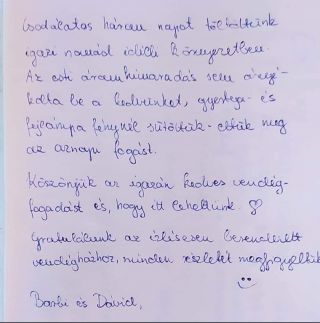 Csodálatos három napot töltöttünk
igazi nomád idilli környezetben.
Az esti áramkimaradás sem árnyé-
kolta be a kedvünket, gyertya- és
fejlámpa fénynél sütöttük-ettük meg
az aznapi fogást.
Köszönjük az igazán kedves vendég-
fogadást és, hogy itt lehettünk. ♡
Gratulálunk az ízlésesen berendezett
vendégházhoz, minden részletét megfigyeltük
☺
Barbi és Dávid,